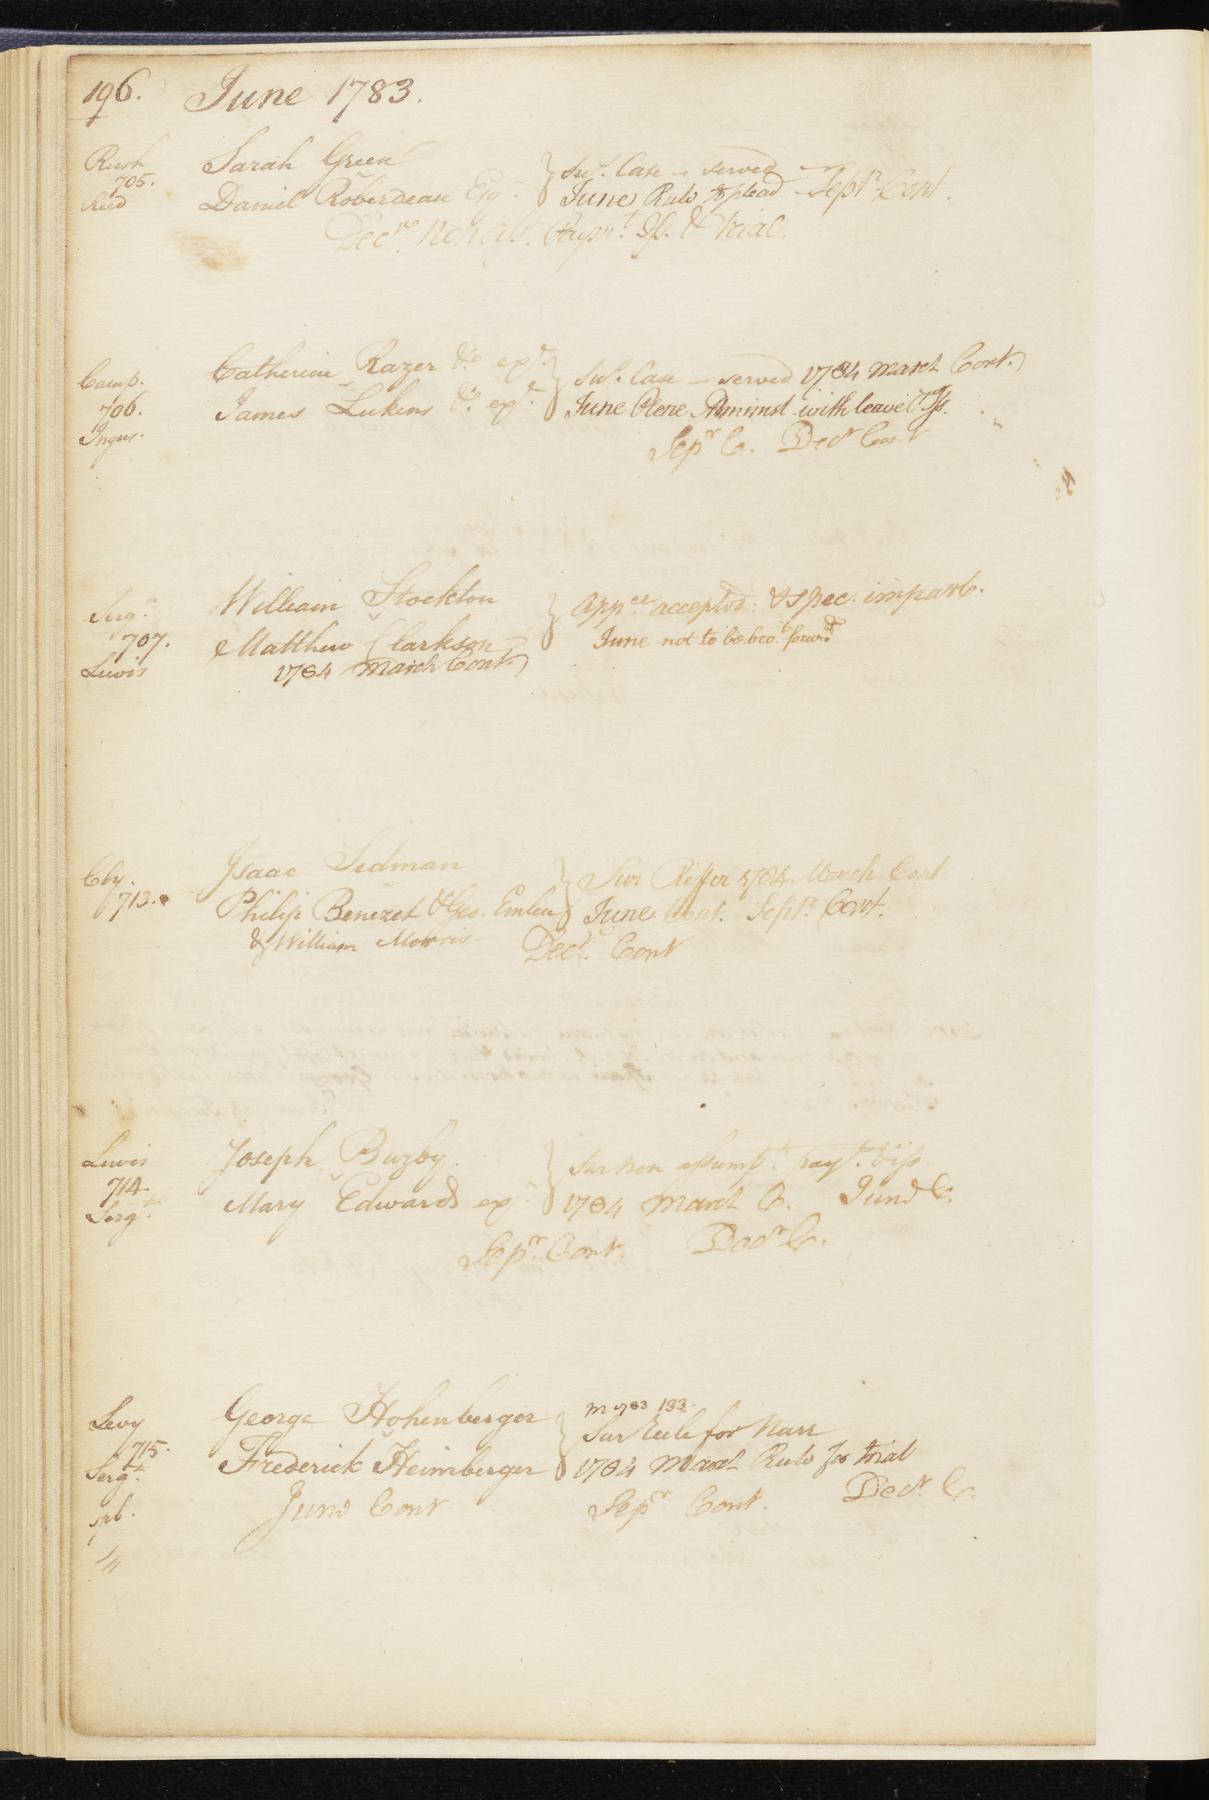 196. June 1783.
Rush
705.
Reed
Sarah Green
Daniel Roberdeau Esqr.
Sur. Case – served
June Rule to plead – Septr. Cont.
Decr. non ass. Paymt. Iss. & trial.
Camp.
706.
Inger.
Catherine Razer &c. exr.
James Lukens &c. exr.
Sur. Case – served 1784 March Cont.
June Plene Adminst. with leave &
Sepr. C. Decr. Cont
Sergt.
707.
Lewis
William Stockton
Matthew Clarkson
1784 March Cont.
Appce. accepted: & spec. imparl.
June not to be bro't. forwd.
Cby.
713.
Isaac Sidman
Philip Benezet & Geo. Emlen
& William Morris
Sur Reffer 1784 March Cont.
June Cont. Septr. Cont.
Decr. Cont
Lewis
714.
Sergt.
Joseph Buzby
Mary Edwards exr.
Sur non assumpt. payt. & iss
1784 March C. June C.
Sepr. Cont. Decr. C.
Levy
715.
Sergt.
spl.
George Hohenberger
Frederick Heimberger
June Cont
Sur Rule for Narr
1784 March Rule for trial
Sepr Cont. Decr. C.